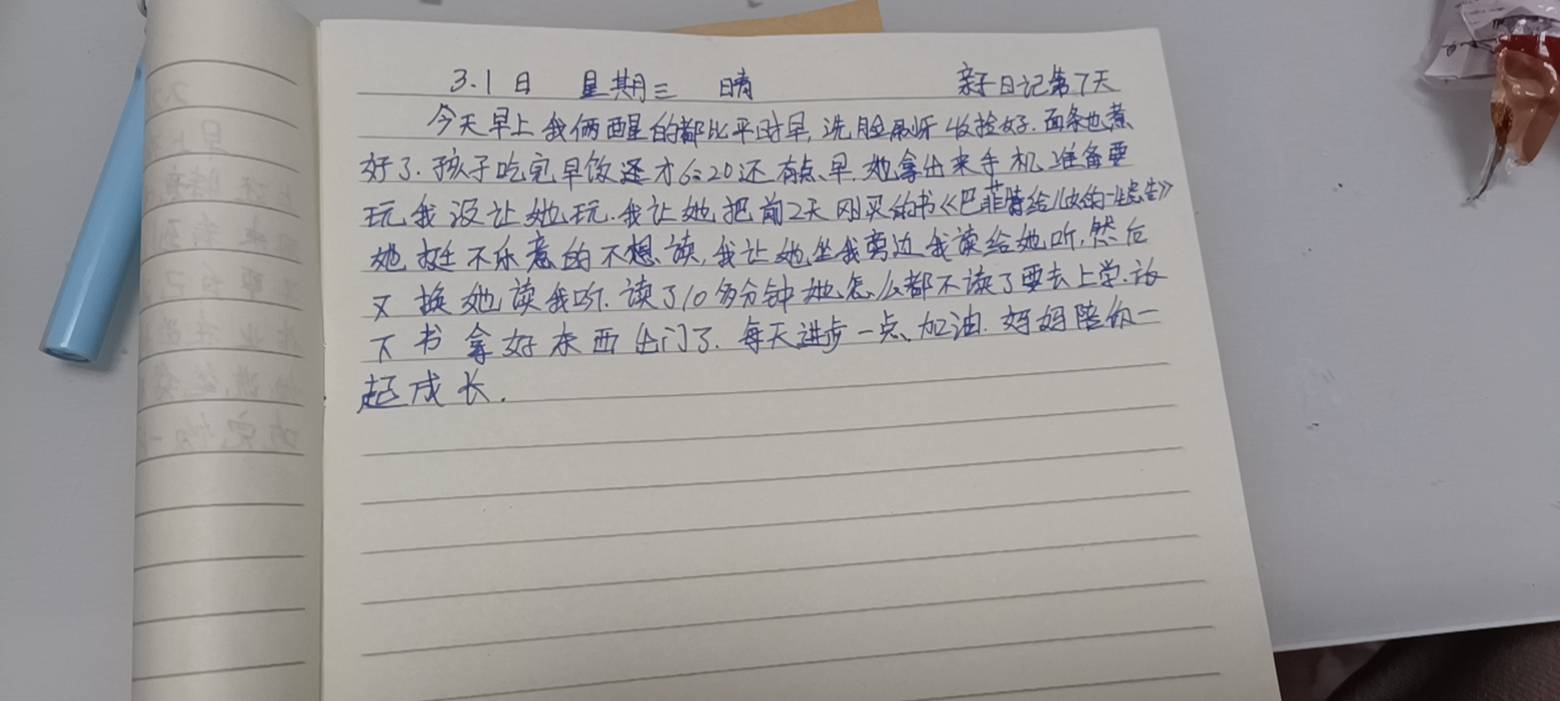 3.1日 星期三 晴 亲子日记第7天
今天早上我俩醒的都比平时早,洗脸刷牙收捡好.面条也煮
好了.孩子吃完早饭还才6:20还有点早.她拿出来手机准备要
玩我没让她玩.我让她把前2天刚买的书《巴菲特给儿女的一生忠告》
她挺不乐意的不想读,我让她坐我旁边我读给她听,然后
又换她读我听.读了10多分钟她怎么都不读了要去上学.放
下书拿好东西出门了.每天进步一点、加油.妈妈陪你一
起成长.